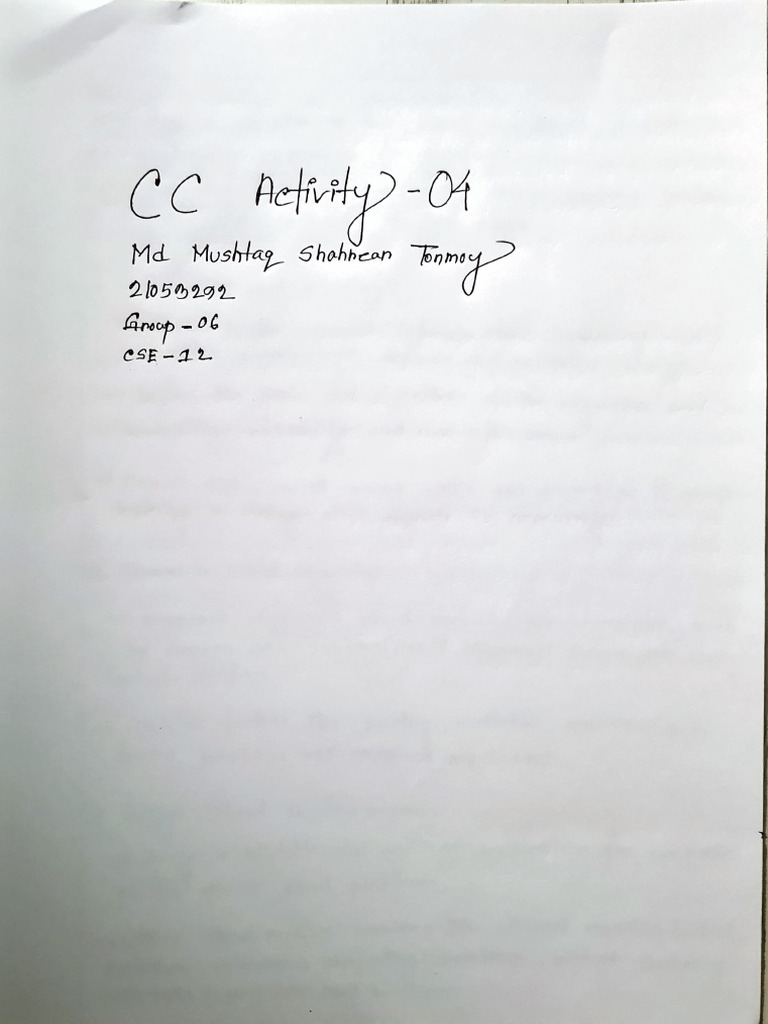 CC Activity - 04
Md Mushtaq Shahnean Tonmoy
21053292
Group - 06
CSE - 12